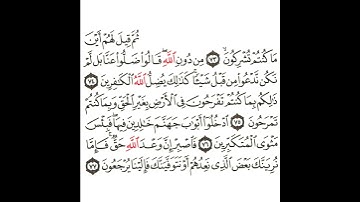 ثُمَّ قِيلَ لَهُمْ أَيْنَ
مَا كُنتُمْ تُشْرِكُونَ ٧٣ مِن دُونِ ٱللَّهِ ۖ قَالُوا۟ ضَلُّوا۟ عَنَّا بَل لَّمْ
نَكُن نَّدْعُوا۟ مِن قَبْلُ شَيْـًٔا ۚ كَذَٰلِكَ يُضِلُّ ٱللَّهُ ٱلْكَـٰفِرِينَ ٧٤
ذَٰلِكُم بِمَا كُنتُمْ تَفْرَحُونَ فِى ٱلْأَرْضِ بِغَيْرِ ٱلْحَقِّ وَبِمَا كُنتُمْ
تَمْرَحُونَ ٧٥ ٱدْخُلُوٓا۟ أَبْوَٰبَ جَهَنَّمَ خَـٰلِدِينَ فِيهَا ۖ فَبِئْسَ
مَثْوَى ٱلْمُتَكَبِّرِينَ ٧٦ فَٱصْبِرْ إِنَّ وَعْدَ ٱللَّهِ حَقٌّ ۚ فَإِمَّا
نُرِيَنَّكَ بَعْضَ ٱلَّذِى نَعِدُهُمْ أَوْ نَتَوَفَّيَنَّكَ فَإِلَيْنَا يُرْجَعُونَ ٧٧